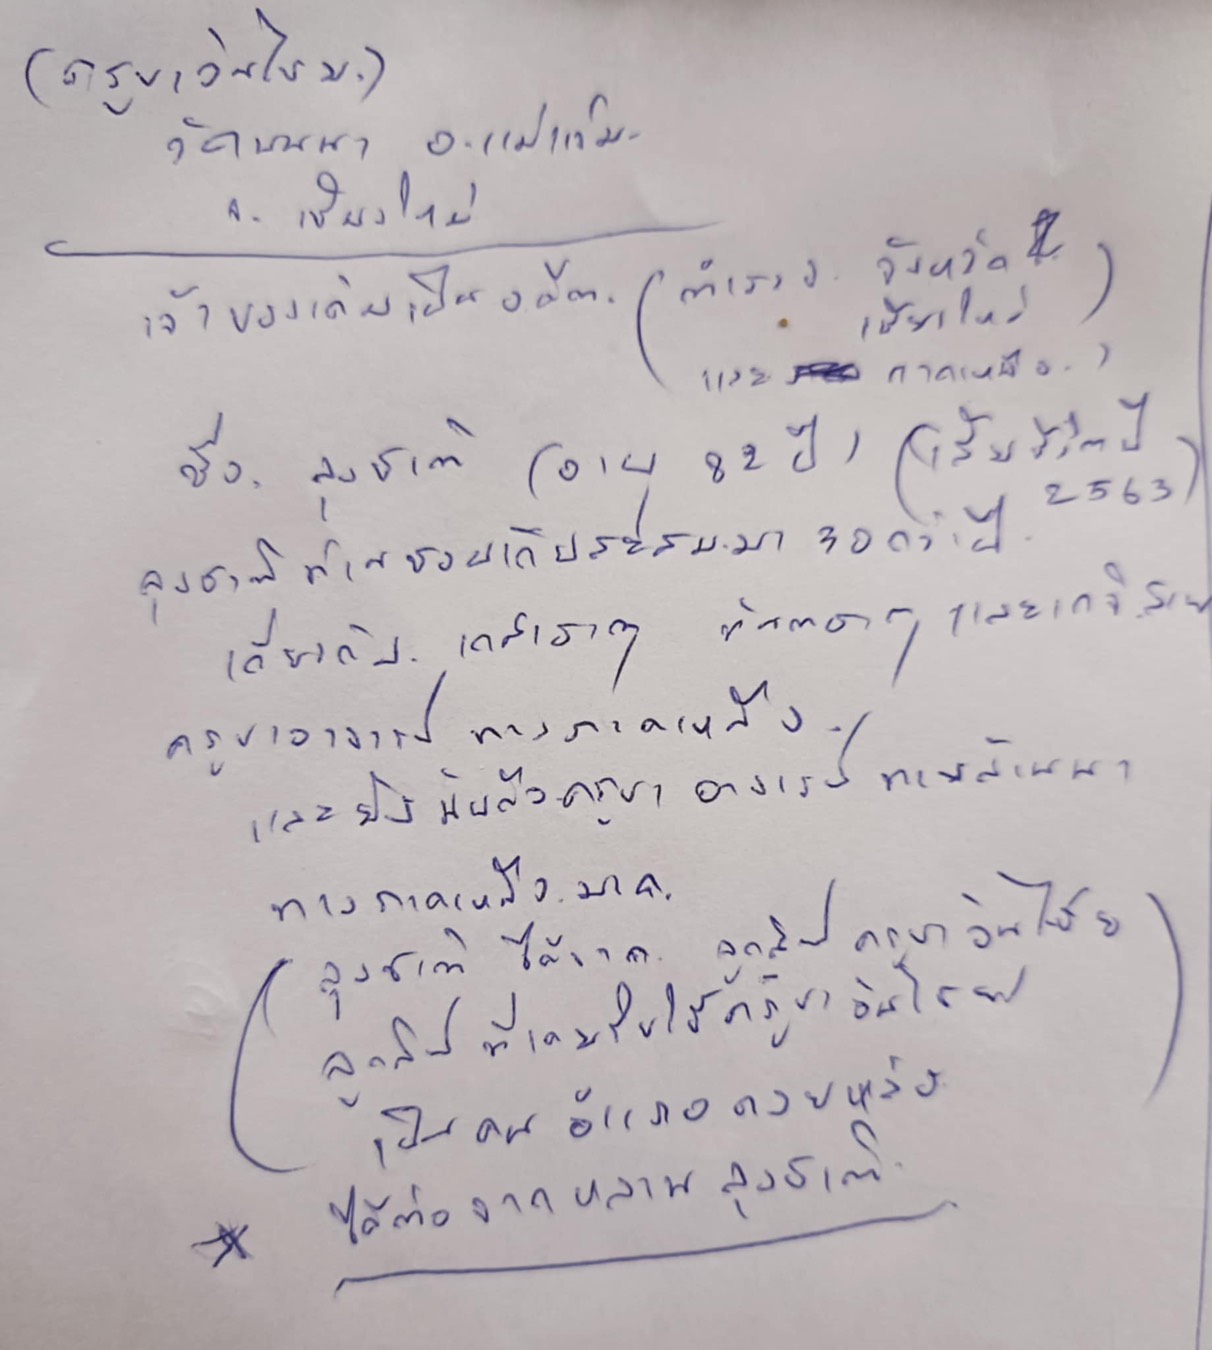 (ครูบาอินไชย.)
วัดบนนา อ.แม่แจ่ม.
จ. เชียงใหม่
เจ้าของเดิมเป็นอดีต. (ตำรวจ. จังหวัด
เชียงใหม่)
และ ภาคเหนือ.)
ชื่อ. ลุงชาติ (อายุ 82 ปี) (เสียชีวิตปี
2563)
ลุงชาติท่านชอบเก็บสะสม.มา 30 กว่าปี.
เกี่ยวกับ. เกสาธาตุ ทันตธาตุ และเกจิ.สาย
ครูบาอาจารย์ ทางภาคเหนือ.
และยังนับถือครูบา อาจารย์ ล้านนา
ทางภาคเหนือ.มาก.
(ลุงชาติ ได้จาก. ลูกศิษย์ ครูบาอินไชย
ลูกศิษย์ ที่เคยรับใช้ครูบาอินไชย
เป็นคน อำเภอดอยหล่อ)
* ได้ต่อจากหลาน ลุงชาติ.